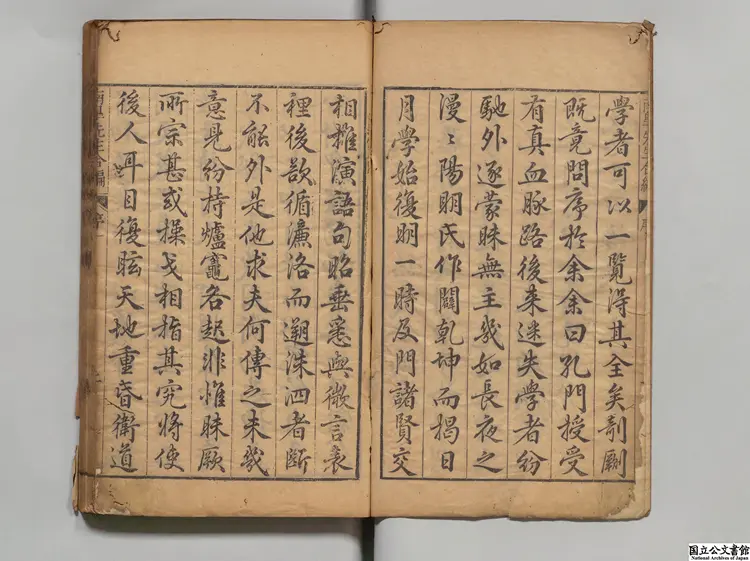 學者可以一覽得其全矣剞劂
既竟問序於余余曰孔門授受
有真血脉路後來迷失學者紛
馳外逐蒙昧無主幾如長夜之
漫〻陽明氏作闢乾坤而揭日
月學始復明一時及門諸賢交
相推演語句昭垂悉與微言表
裡後欲循濂洛而遡洙泗者斷
不能外是他求夫何傳之未幾
意見紛持爐竈各起非惟昧厥
所宗甚或操戈相指其究將使
後人耳目復眩天地重昏衛道
先生合編
序
国立公文書館
National Archives of Japan